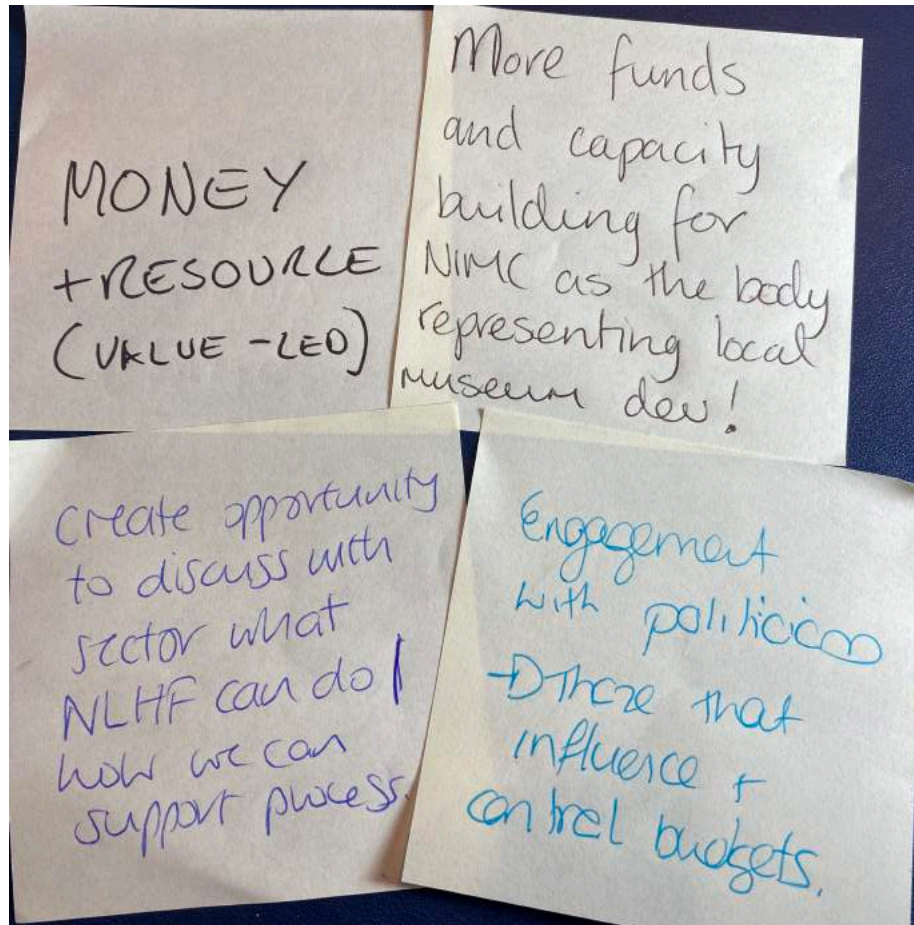 MONEY
+ RESOURCE
(VALUE-LED)
More funds
and capacity
building for
NIMC as the body
representing local
museum dev!
Create opportunity
to discuss with
sector what
NLHF can do /
how we can
support process.
Engagement
with politicians
→ Those that
influence +
control budgets.